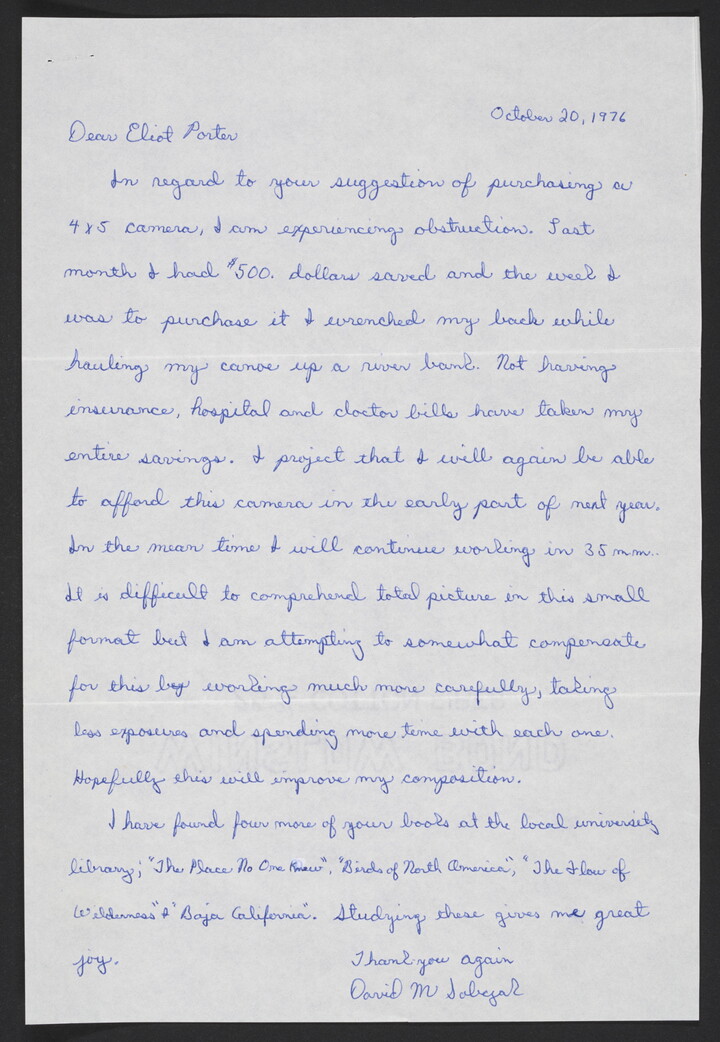 October 20, 1976
Dear Eliot Porter
In regard to your suggestion of purchasing a
4x5 camera, I am experiencing obstruction. Last
month I had $500. dollars saved and the week I
was to purchase it I wrenched my back while
hauling my canoe up a river bank. Not having
insurance, hospital and doctor bills have taken my
entire savings. I project that I will again be able
to afford this camera in the early part of next year.
In the mean time I will continue working in 35 mm..
It is difficult to comprehend total picture in this small
format but I am attempting to somewhat compensate
for this by working much more carefully, taking
less exposures and spending more time with each one.
Hopefully this will improve my composition.
I have found four more of your books at the local university
library; "The Place No One Knew", "Birds of North America", "The Flow of
Wilderness" & "Baja California". Studying these gives me great
joy.
Thank you again
David M